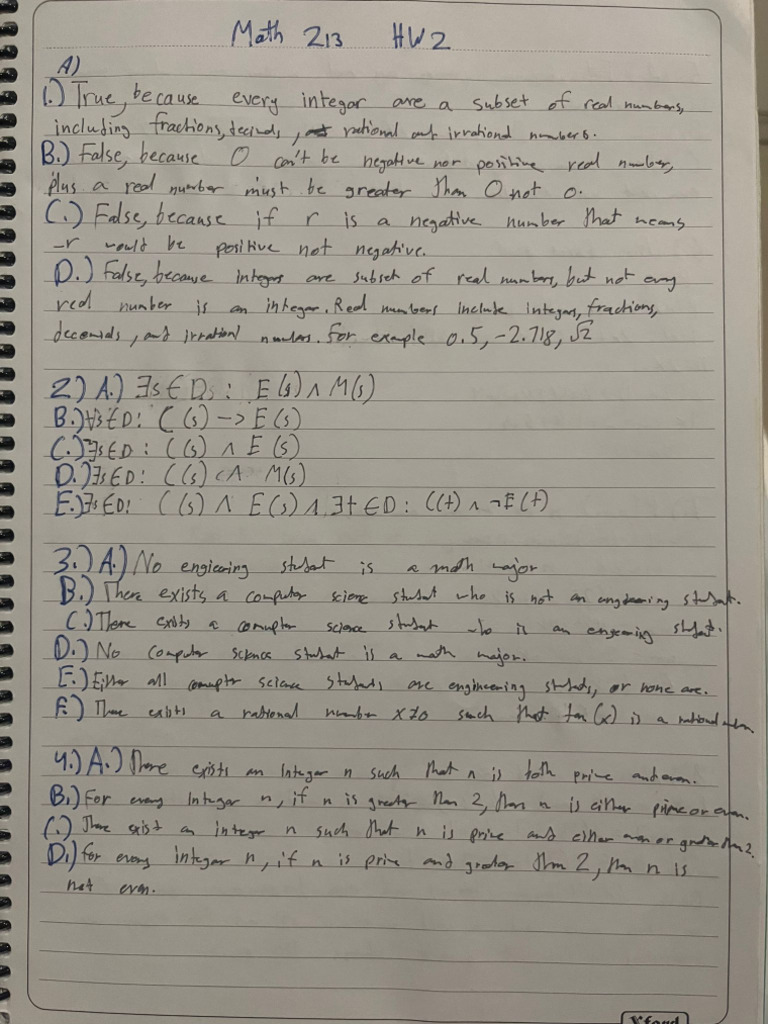 Math 213 HW2
A)
1.) True, because every integar are a subset of real numbers,
including fractions, decimals, rational and irrational numbers.
B.) False, because 0 can't be negative nor positive real number,
plus a real number must be greater than 0 not 0.
C.) False, because if r is a negative number that means
-r would be positive not negative.
D.) False, because integers are subset of real numbers, but not every
real number is an integer. Real numbers include integers, fractions,
decemals, and irrational numbers. For example 0.5, -2.718, √2
2) A.) ∃s∈D: E(s) ∧ M(s)
B.) ∀s∈D: C(s) -> E(s)
C.) ∃s∈D: C(s) ∧ E(s)
D.) ∃s∈D: C(s) ∧ M(s)
E.) ∃s∈D: C(s) ∧ E(s) ∧ ∃t∈D: C(t) ∧ ¬E(t)
3.) A.) No engieering student is a math major
B.) There exists a computer science student who is not an engineering student.
C.) There exists a computer science student who is an engineering student.
D.) No computer science student is a math major.
E.) Either all computer science students are engineering students, or none are.
F.) There exists a rational number x≠0 such that tan(x) is a rational number.
4.) A.) There exists an integer n such that n is both prime and even.
B.) For every integer n, if n is greater than 2, then n is either prime or even.
C.) There exist an integer n such that n is prime and either even or greater than 2.
D.) for every integer n, if n is prime and greater than 2, then n is
not even.